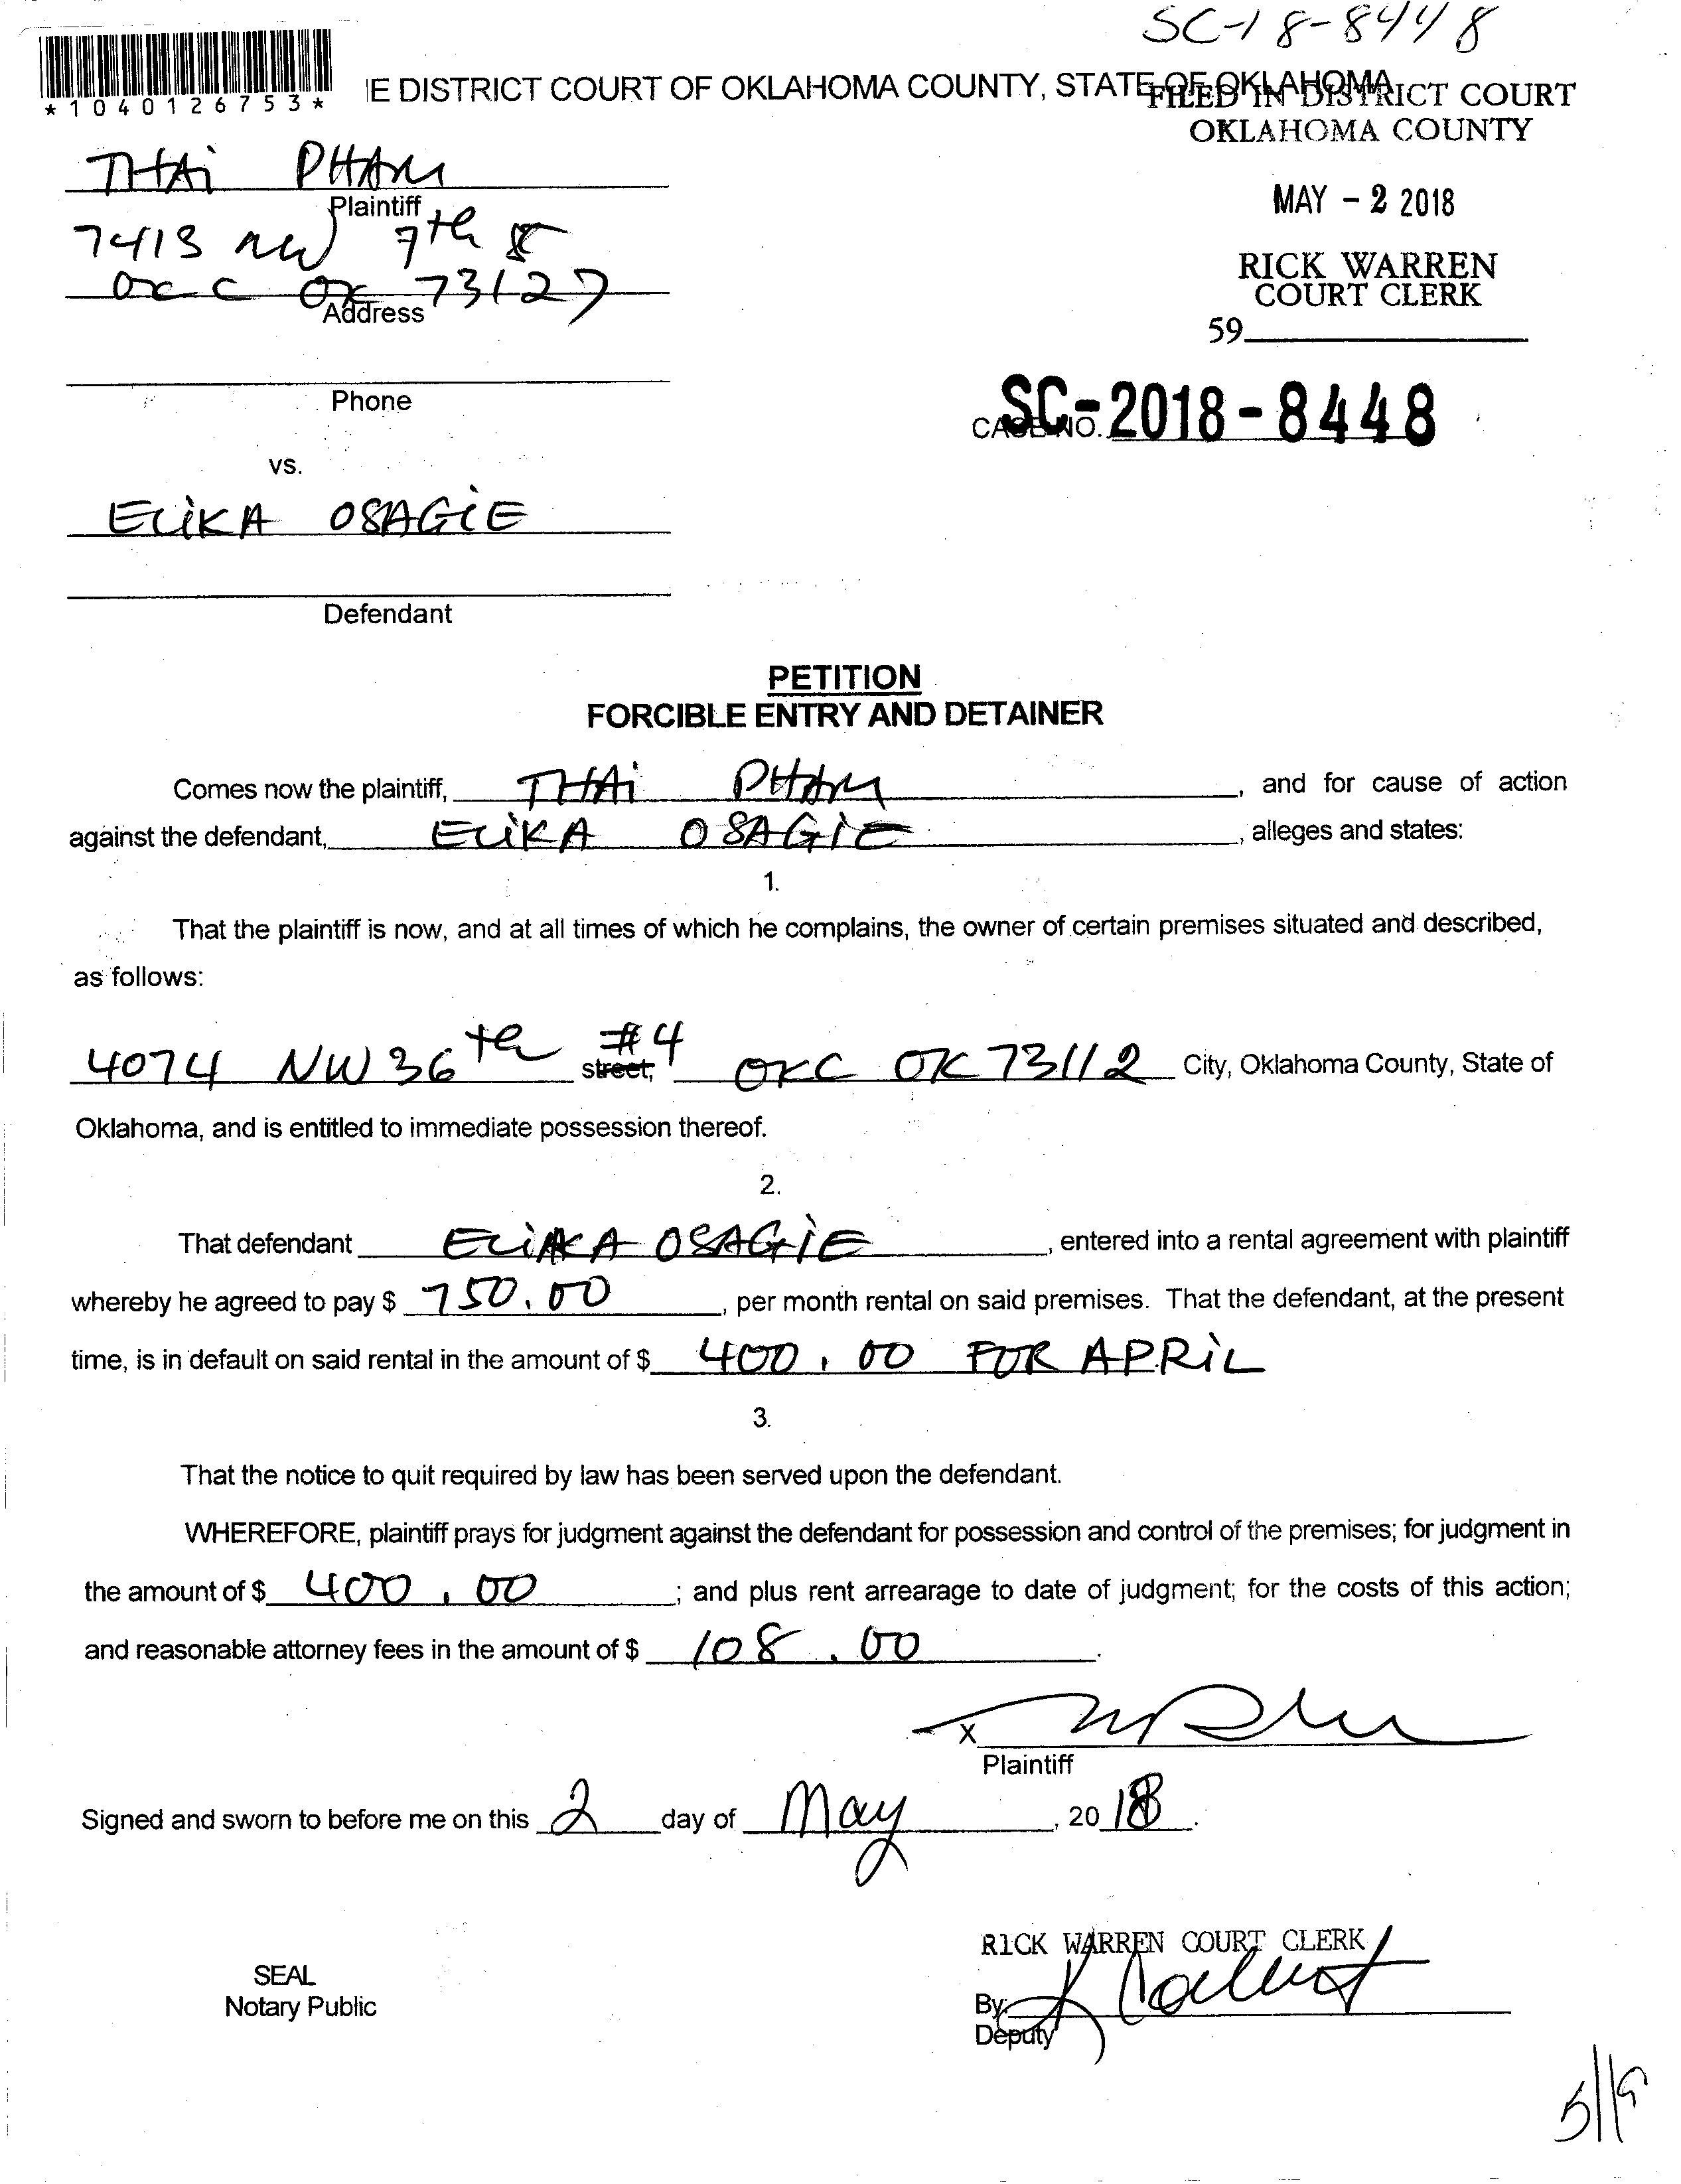 SC-18-8448
*1040126753*
IE DISTRICT COURT OF OKLAHOMA COUNTY, STATE OF OKLAHOMA
FILED IN DISTRICT COURT
OKLAHOMA COUNTY
THAi PHAM
Plaintiff
MAY - 2 2018
7413 NW 7th
RICK WARREN
COURT CLERK
OKC OK 73127
Address
59
Phone
CASE NO. SC-2018-8448
vs.
ELiKA OSAGiE
Defendant
PETITION
FORCIBLE ENTRY AND DETAINER
Comes now the plaintiff, THAi PHAM, and for cause of action
against the defendant, ELiKA OSAGiE, alleges and states:
1.
That the plaintiff is now, and at all times of which he complains, the owner of certain premises situated and described,
as follows:
4074 NW 36th street, #4 OKC OK 73112 City, Oklahoma County, State of
Oklahoma, and is entitled to immediate possession thereof.
2.
That defendant ELiKA OSAGiE, entered into a rental agreement with plaintiff
whereby he agreed to pay $ 750.00, per month rental on said premises. That the defendant, at the present
time, is in default on said rental in the amount of $ 400.00 FOR APRiL
3.
That the notice to quit required by law has been served upon the defendant.
WHEREFORE, plaintiff prays for judgment against the defendant for possession and control of the premises; for judgment in
the amount of $ 400.00; and plus rent arrearage to date of judgment; for the costs of this action;
and reasonable attorney fees in the amount of $ 108.00.
X
Plaintiff
Signed and sworn to before me on this 2 day of May, 2018.
RICK WARREN COURT CLERK
SEAL
Notary Public
By:
Deputy